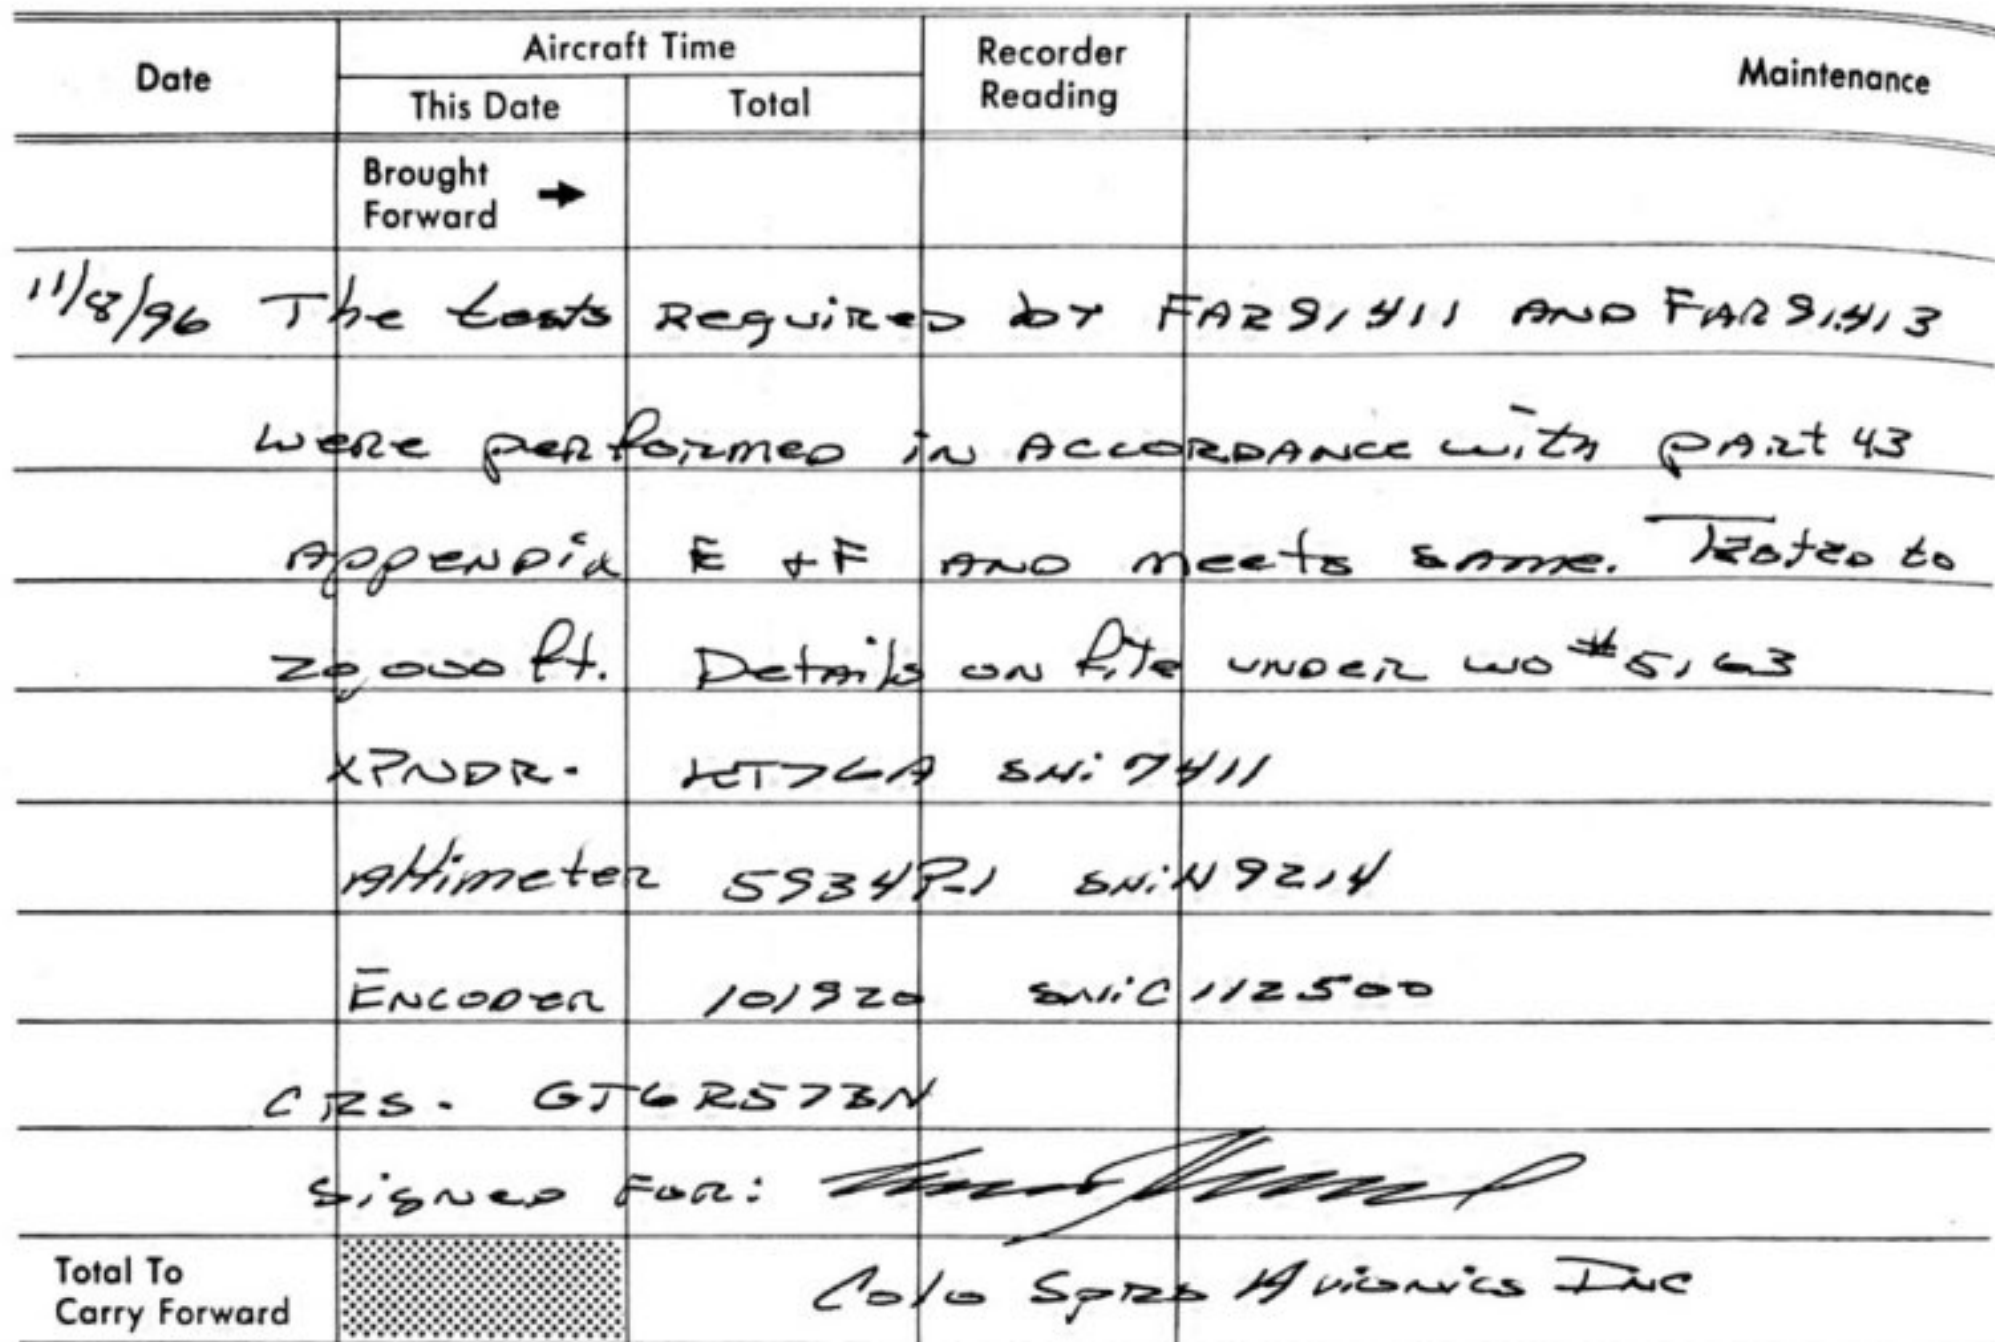 Date
Aircraft Time
This Date
Total
Recorder
Reading
Maintenance
Brought
Forward
11/8/96 The tests Required by FAR 91.411 AND FAR 91.413
were performed in ACCORDANCE with PART 43
APPENDix E + F AND meets SAME. Tested to
20,000 ft. Details on file UNDER WO #5163
XPNDR. KT76A SN: 7411
Altimeter 5934P-1 SN: N9214
ENCODER 101920 SN: C112500
CRS. GJ6R573N
Signed FOR:
Colo Sprs Avionics INC
Total To
Carry Forward